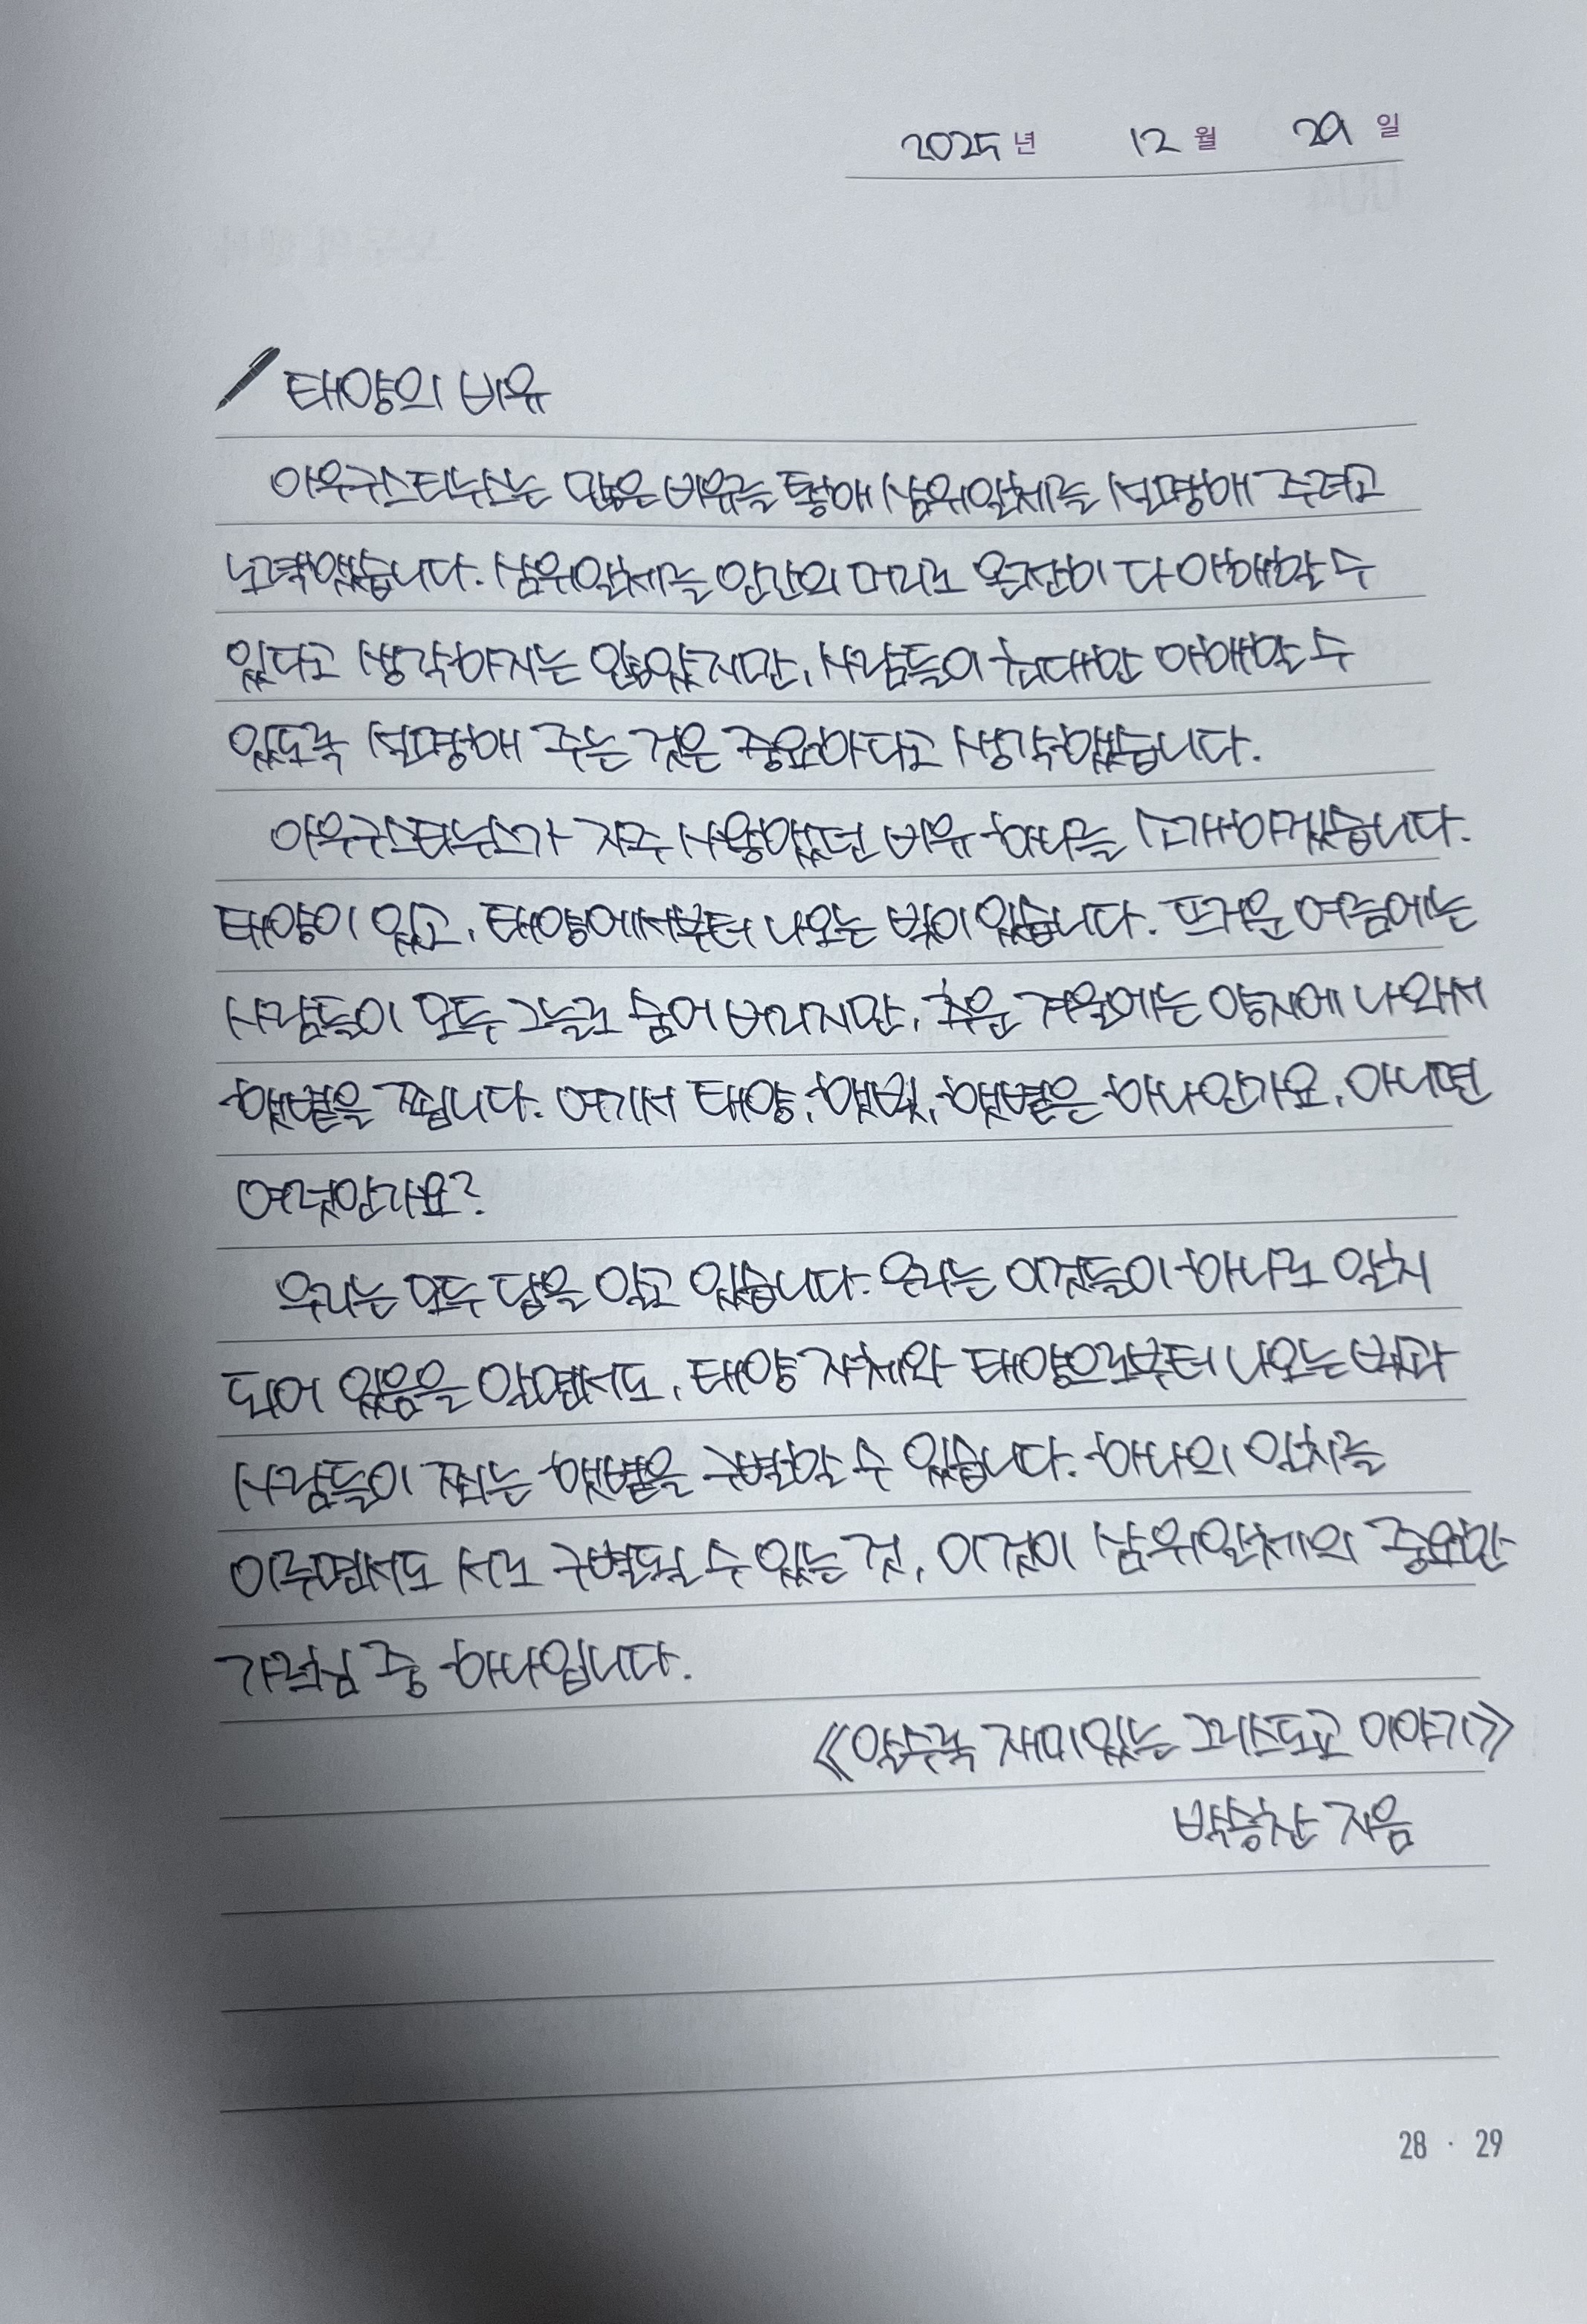 2025년 12월 29일
태양의 비유
아우구스티누스는 많은 비유를 통해 삼위일체를 설명해 주려고
노력했습니다. 삼위일체를 인간의 머리로 온전히 다 이해할 수
있다고 생각하지는 않았지만, 사람들이 최대한 이해할 수
있도록 설명해 주는 것은 중요하다고 생각했습니다.
아우구스티누스가 자주 사용했던 비유 하나를 소개하겠습니다.
태양이 있고, 태양에서부터 나오는 빛이 있습니다. 뜨거운 여름에는
사람들이 모두 그늘로 숨어 버리지만, 추운 겨울에는 양지에 나와서
햇볕을 쬡니다. 여기서 태양, 햇빛, 햇볕은 하나인가요, 아니면
여럿인가요?
우리는 모두 답을 알고 있습니다. 우리는 이것들이 하나로 일치
되어 있음을 알면서도, 태양 자체와 태양으로부터 나오는 빛과
사람들이 쬐는 햇볕을 구별할 수 있습니다. 하나의 일치를
이루면서도 서로 구별될 수 있는 것, 이것이 삼위일체의 중요한
가르침 중 하나입니다.
《알수록 재미있는 그리스도교 이야기》
박승찬 지음
28 · 29